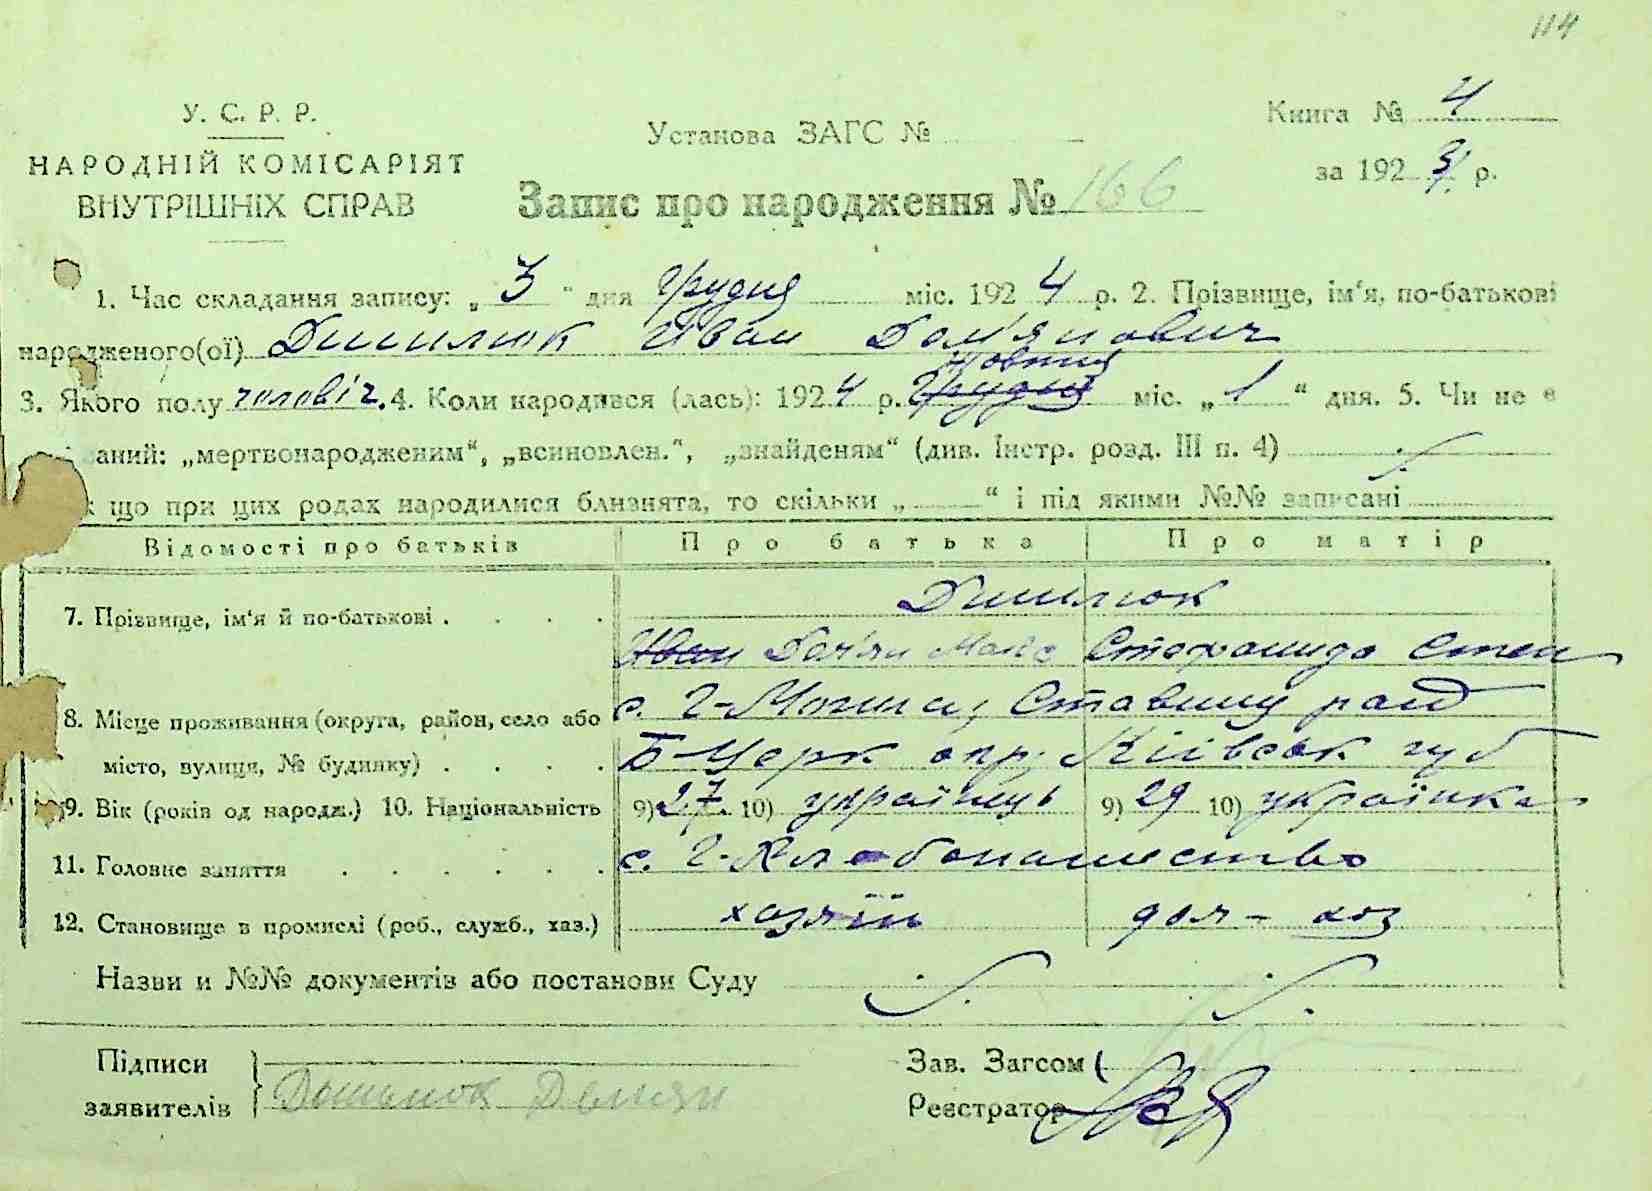 114
У. С. Р. Р.
НАРОДНІЙ КОМІСАРІЯТ
ВНУТРІШНІХ СПРАВ
Установа ЗАГС №
Книга № 4
за 192 р.
Запис про народження № 166
1. Час складання запису: „ 3 “ дня Грудня міс. 192 4 р. 2. Прізвище, ім'я, по-батькові
народженого(ої) Іван Дем'янович
3. Якого полу чоловіч. 4. Коли народився (лась): 192 4 р. Грудня Жовтня міс. „ 1 “ дня. 5. Чи не є
аний: „мертвонародженим“, „всиновлен.“, „знайденям“ (див. Інстр. розд. III п. 4)
к що при цих родах народилися близнята, то скільки „ “ і під якими №№ записані
Відомості про батьків Про батька Про матір
7. Прізвище, ім'я й по-батькові . . . .
Иван Дем'ян Степанида Степ
8. Місце проживання (округа, район, село або с. Ставищ район
місто, вулиця, № будинку) . . . . Б Церк окр. Київськ губ
9. Вік (років од народж.) 10. Національність 9) 27. 10) українець 9) 29 10) українка
11. Головне заняття . . . . . . с.
12. Становище в промислі (роб., служб., хаз.) хазяїн
Назви и №№ документів або постанови Суду
Підписи
заявителів
Зав. Загсом (
Реєстратор